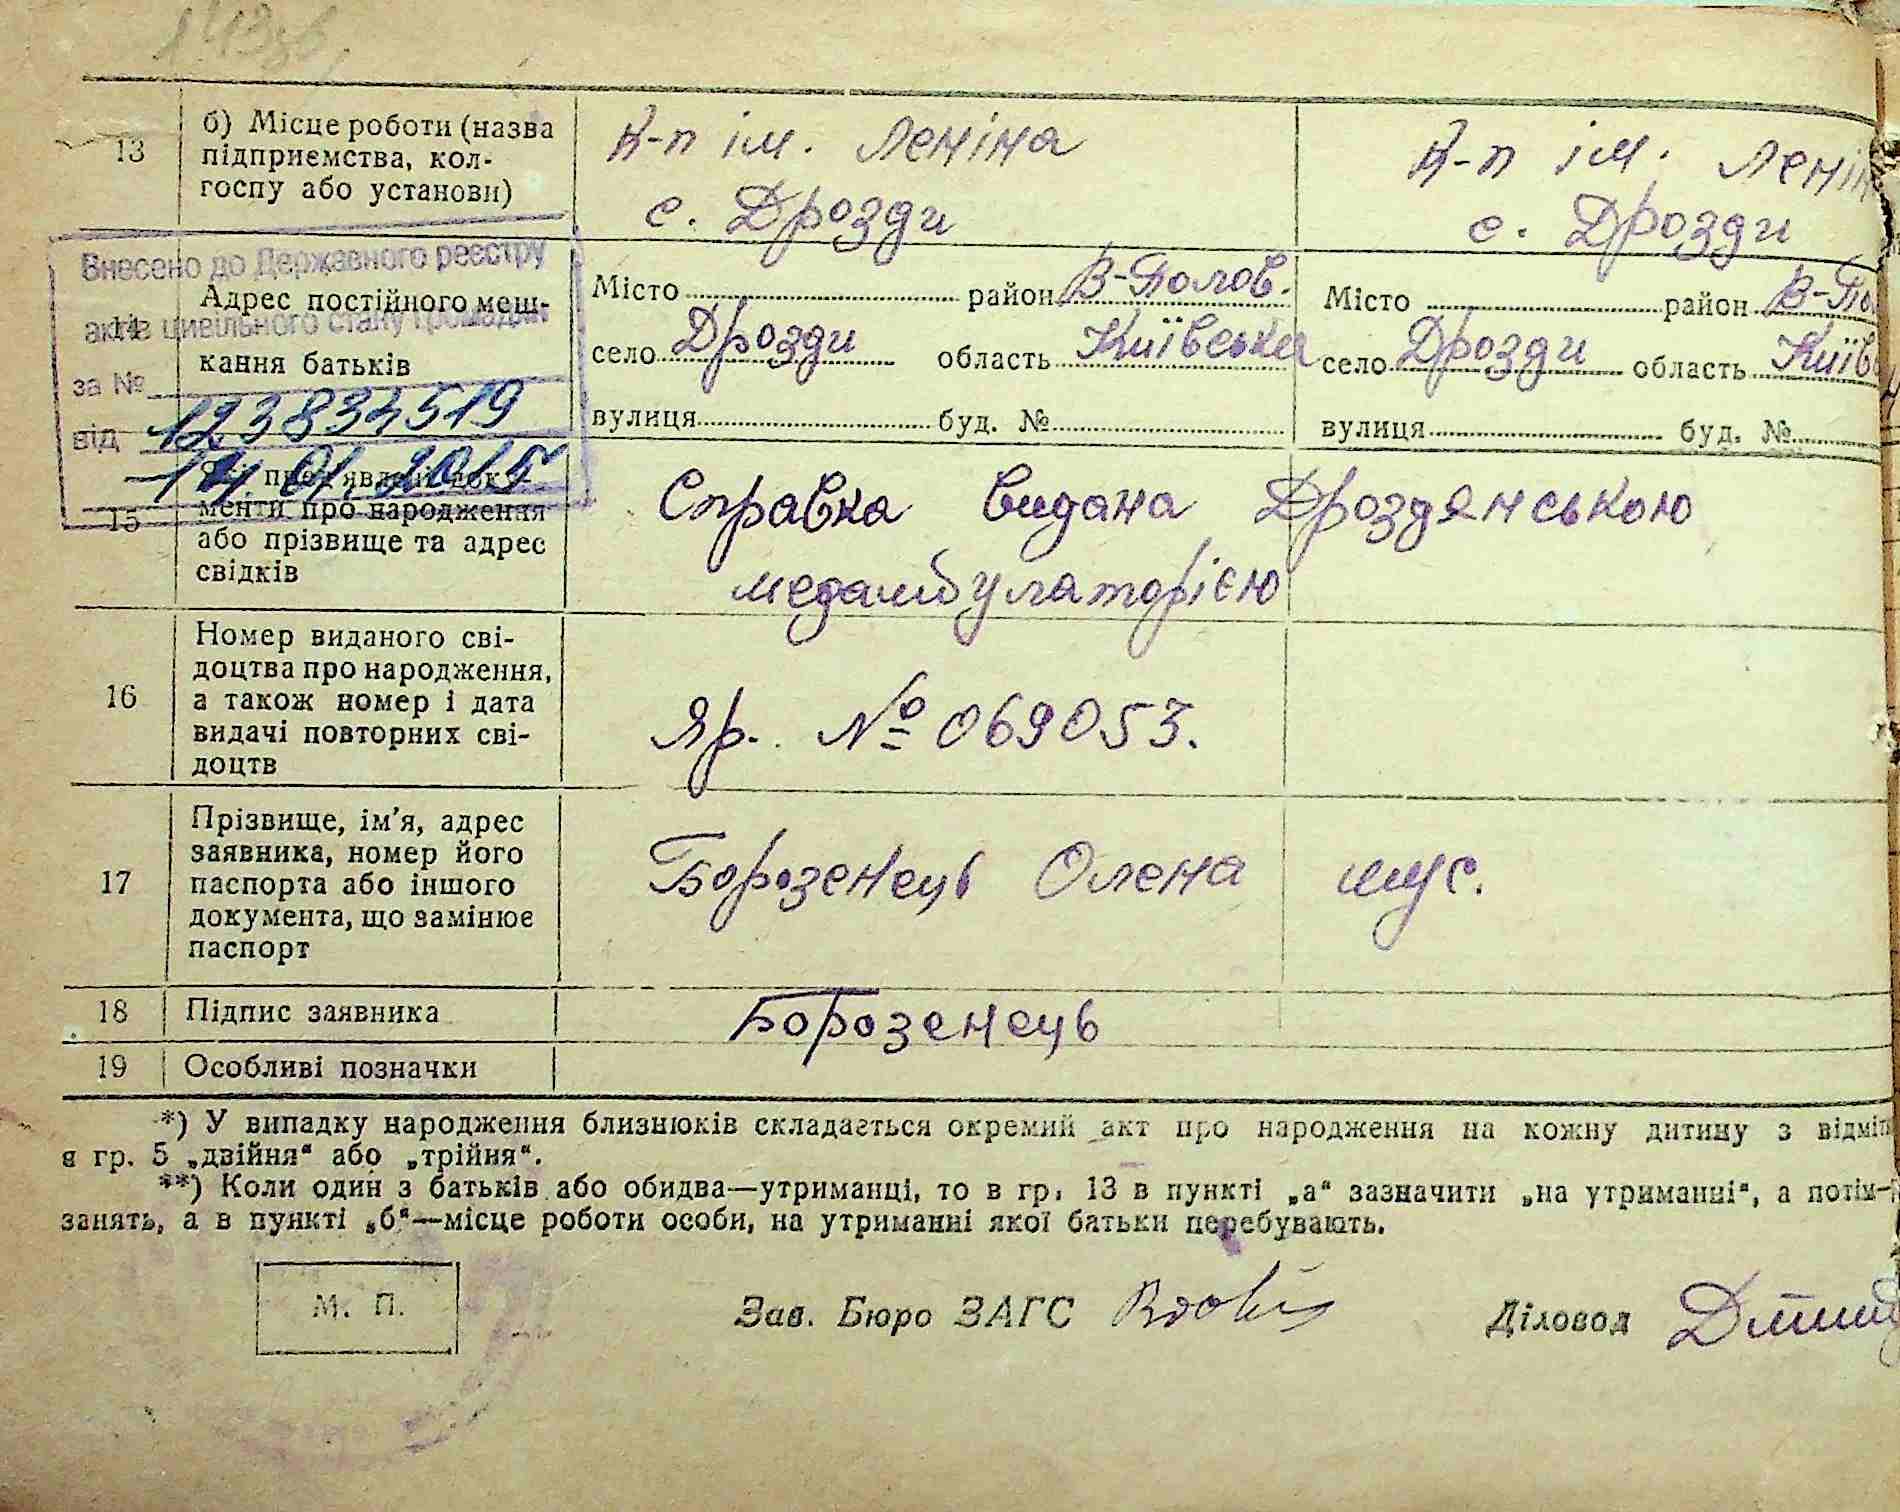 13
б) Місце роботи (назва
підприємства, кол-
госпу або установи)
К-п ім. Леніна
с. Дрозди
К-п ім. Ленін
с. Дрозди
Внесено до Державного реєстру
актів цивільного стану громадян
за № 123833519
від 14.01.2015
14
Адрес постійного меш-
кання батьків
Місто район В-Полов.
село Дрозди область Київська
вулиця буд. №
Місто район В-По
село Дрозди область Київ
вулиця буд. №
15
Які пред'явлені доку-
менти про народження
або прізвище та адрес
свідків
Справка видана Дроздянською
медамбулаторією
16
Номер виданого сві-
доцтва про народження,
а також номер і дата
видачі повторних сві-
доцтв
Яр. № 069053.
17
Прізвище, ім'я, адрес
заявника, номер його
паспорта або іншого
документа, що замінює
паспорт
Борозенець Олена
18
Підпис заявника
Борозенець
19
Особливі позначки
*) У випадку народження близнюків складається окремий акт про народження на кожну дитину з відміт
в гр. 5 „двійня“ або „трійня“.
**) Коли один з батьків або обидва—утриманці, то в гр. 13 в пункті „а“ зазначити „на утриманні“, а потім—
занять, а в пункті „б“—місце роботи особи, на утриманні якої батьки перебувають.
М. П.
Зав. Бюро ЗАГС
Діловод